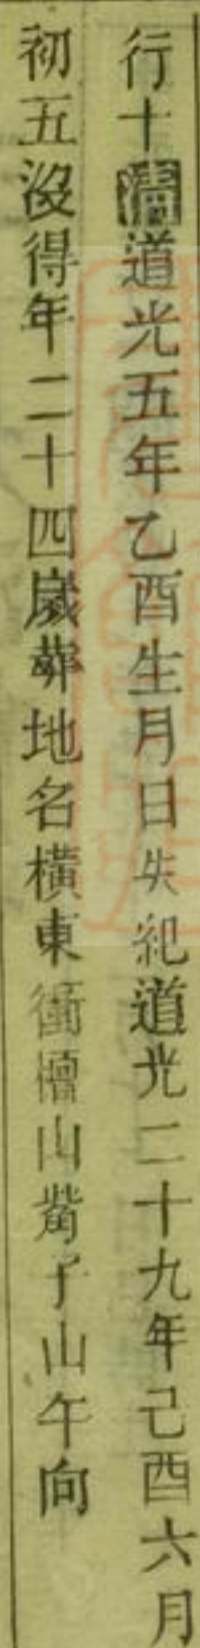 行十道光五年乙酉生月日失紀道光二十九年己酉六月
初五沒得年二十四歲葬地名橫東衝山觜子山午向